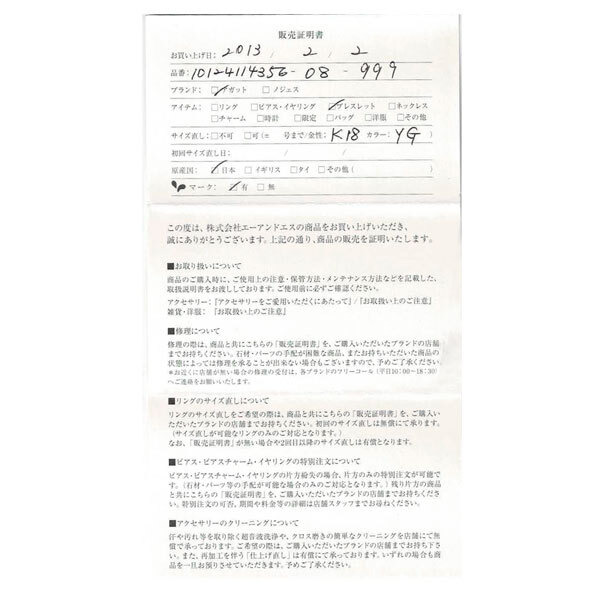 販売証明書
お買い上げ日: 2013 / 2 / 2
品番: 10124114356-08-999
ブランド: □アガット □ノジェス
アイテム: □リング □ピアス・イヤリング □ブレスレット □ネックレス
□チャーム □時計 □限定 □バッグ □洋服 □その他
サイズ直し: □不可 □可(± 号まで/金性: K18 カラー: YG )
初回サイズ直し日: / /
原産国: □日本 □イギリス □タイ □その他( )
マーク: □有 □無
この度は、株式会社エーアンドエスの商品をお買い上げいただき、
誠にありがとうございます。上記の通り、商品の販売を証明いたします。
■お取り扱いについて
商品のご購入時に、ご使用上の注意・保管方法・メンテナンス方法などを記載した、
取扱説明書をお渡ししております。ご使用前に必ずご確認ください。
アクセサリー:『アクセサリーをご愛用いただくにあたって』/『お取扱い上のご注意』
雑貨・洋服: 『お取扱い上のご注意』
■修理について
修理の際は、商品と共にこちらの「販売証明書」を、ご購入いただいたブランドの店舗
までお持ちください。石材・パーツの手配が困難な商品、またお持ちいただいた商品の
状態によっては修理を承ることが出来ない場合もございますので、予めご了承ください。
*お近くに店舗が無い場合の修理の受付は、各ブランドのフリーコール(平日10:00~18:30)
へご連絡をお願いいたします。
■リングのサイズ直しについて
リングのサイズ直しをご希望の際は、商品と共にこちらの「販売証明書」を、ご購入い
ただいたブランドの店舗までお持ちください。初回のサイズ直しは無償にて承ります。
(サイズ直しが可能なリングのみのご対応となります。)
なお、「販売証明書」が無い場合や2回目以降のサイズ直しは有償となります。
■ピアス・ピアスチャーム・イヤリングの特別注文について
ピアス・ピアスチャーム・イヤリングの片方紛失の場合、片方のみの特別注文が可能で
す。(石材・パーツ等の手配が可能な場合のみのご対応となります。)残り片方の商品
と共にこちらの「販売証明書」を、ご購入いただいたブランドの店舗までお持ちください。
特別注文の可否、期間や料金等の詳細は店舗スタッフまでお尋ねください。
■アクセサリーのクリーニングについて
汗や汚れ等を取り除く超音波洗浄や、クロス磨きの簡単なクリーニングを店舗にて無
償で承っております。ご希望の際は、ご購入いただいたブランドの店舗までお持ち下さ
い。また、再加工を伴う「仕上げ直し」は有償にて承っております。いずれの場合も商
品を一旦お預りさせていただきます。予めご了承ください。